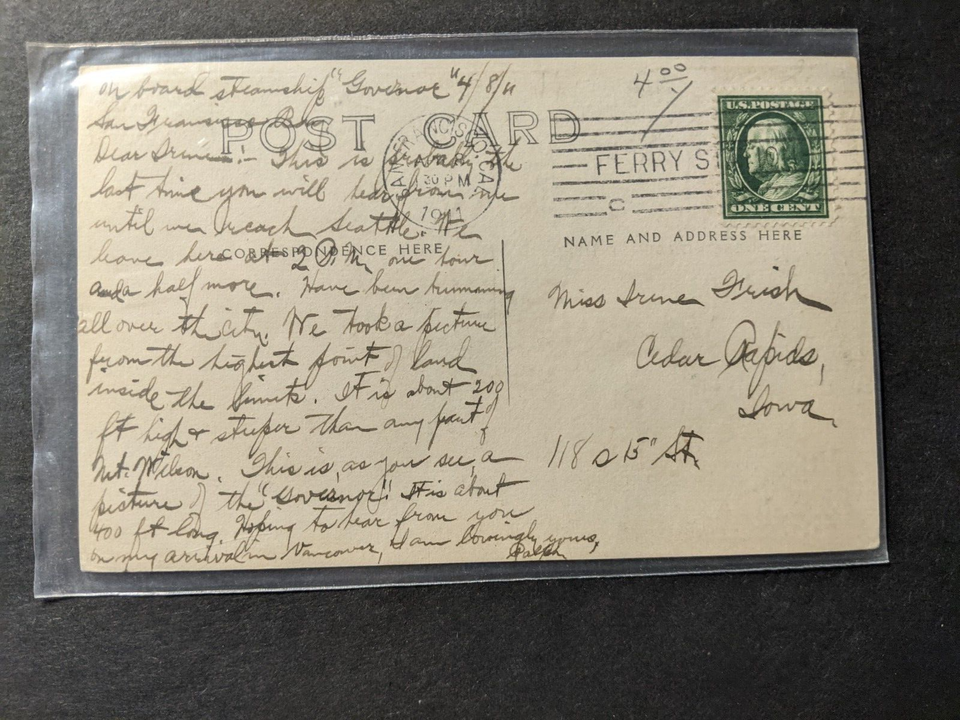 On board steamship "Governor" 4/8/11
San Fransisco
Dear Irene:- This is probably the
last time you will hear from me
until we reach Seattle. We
leave here at 2 P.M. one hour
and a half more. Have been running
all over the city. We took a picture
from the highest point of land
inside the limits. It is about 200
ft high & steeper than any part of
Mt. Wilson. This is, as you see, a
picture of the "Governor". It is about
400 ft long. Hoping to hear from you
on my arrival in Vancouver, I am lovingly yours,
Ralph
POST CARD
CORRESPONDENCE HERE
SAN FRANCISCO, CAL.
APR
30 PM
1911
4 00
FERRY S
U.S. POSTAGE
ONE CENT
NAME AND ADDRESS HERE
Miss Irene Frish
Cedar Rapids,
Iowa.
118 S 15" St.